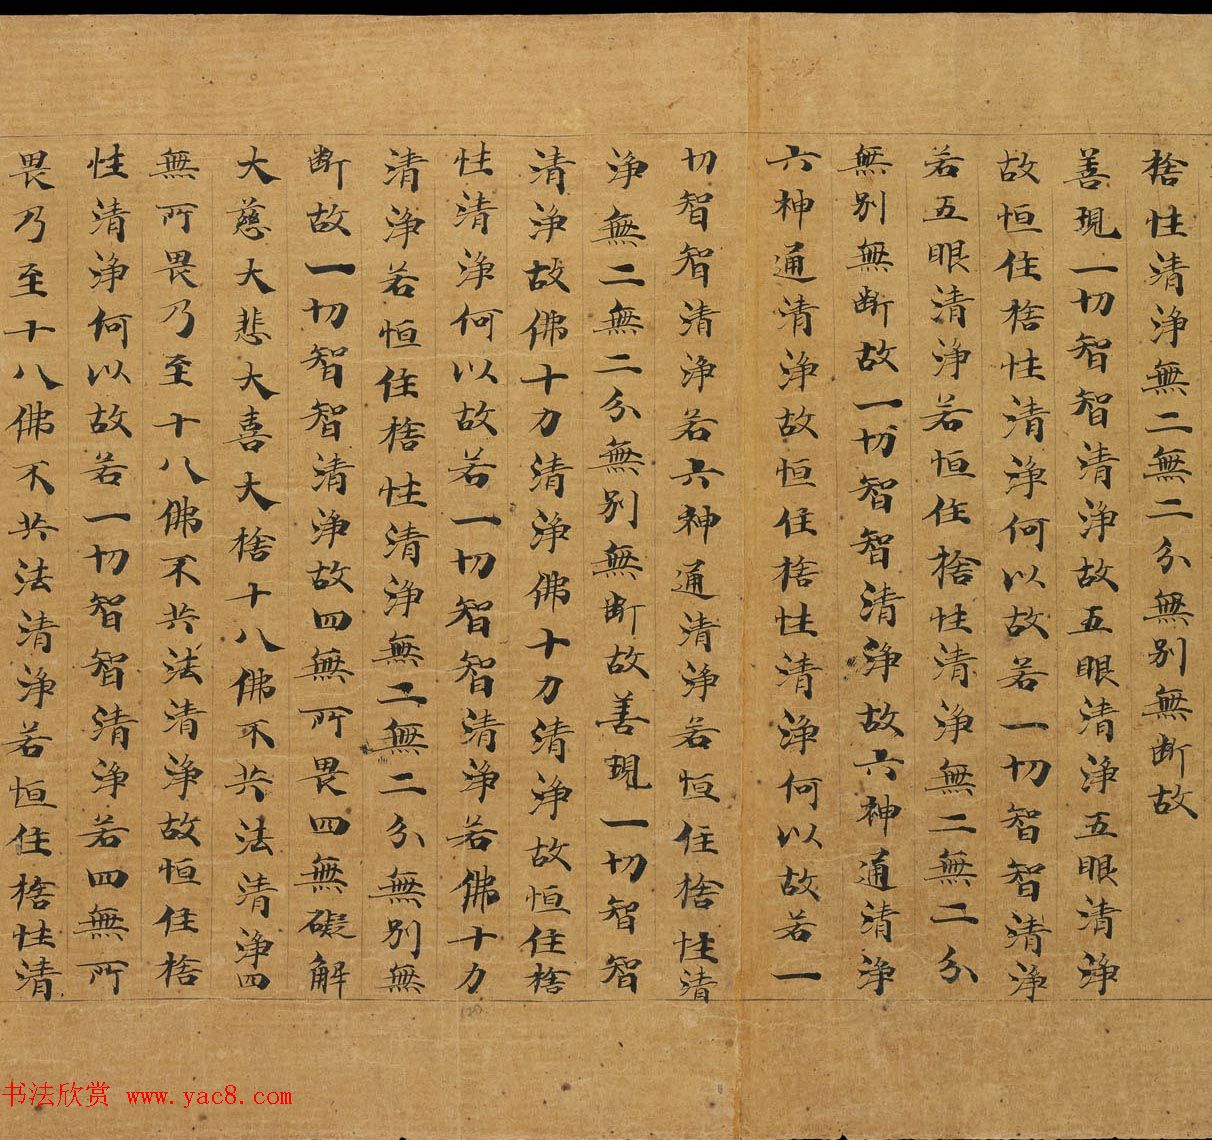 捨性清淨無二無二分無別無断故
善現一切智智清淨故五眼清淨五眼清淨
故恒住捨性清淨何以故若一切智智清淨
若五眼清淨若恒住捨性清淨無二無二分
無別無断故一切智智清淨故六神通清淨
六神通清淨故恒住捨性清淨何以故若一
切智智清淨若六神通清淨若恒住捨性清
淨無二無二分無別無断故善現一切智智
清淨故佛十力清淨佛十力清淨故恒住捨
性清淨何以故若一切智智清淨若佛十力
清淨若恒住捨性清淨無二無二分無別無
断故一切智智清淨故四無所畏四無礙解
大慈大悲大喜大捨十八佛不共法清淨四
無所畏乃至十八佛不共法清淨故恒住捨
性清淨何以故若一切智智清淨若四無所
畏乃至十八佛不共法清淨若恒住捨性清
书法欣赏 www.yac8.com